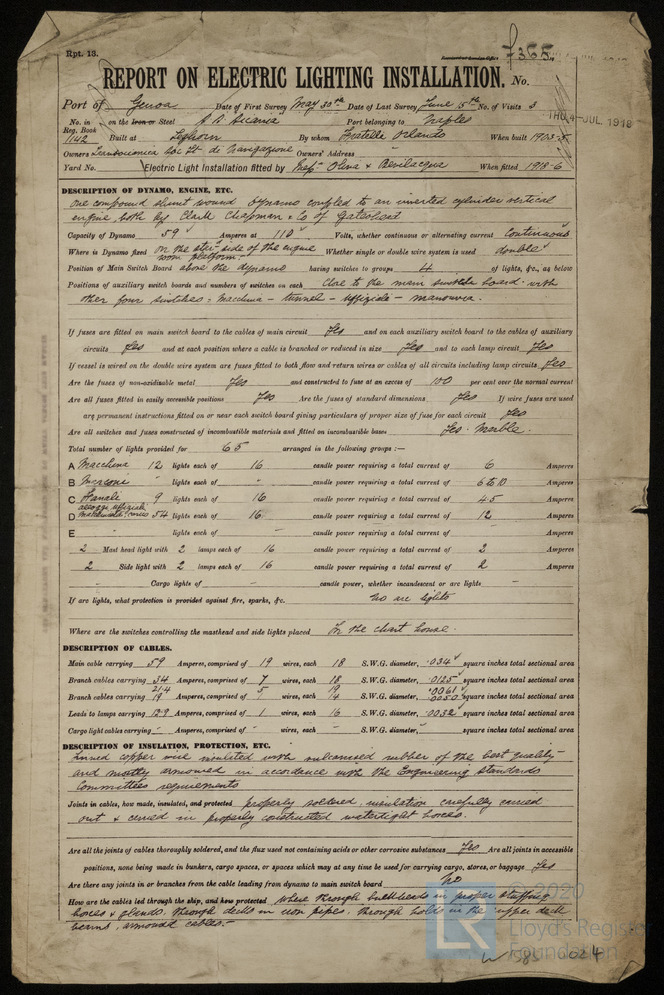 Rpt. 13.
7355.
REPORT ON ELECTRIC LIGHTING INSTALLATION. No.
Port of Genoa Date of First Survey May 30th Date of Last Survey June 15th No. of Visits 3
THU. 4-JUL. 1918
No. in Reg. Book 1142 on the Iron or Steel S.S. Sicania Port belonging to Naples
Built at Leghorn By whom Fratelli Orlando When built 1903-5
Owners Transoceanica Soc It. de Navigazione Owners' Address —
Yard No. Electric Light Installation fitted by Oliva & Bevilacqua When fitted 1918-6
DESCRIPTION OF DYNAMO, ENGINE, ETC.
One compound shunt wound dynamo coupled to an inverted cylinder vertical
engine, both by Clark Chapman & Co of Gateshead
Capacity of Dynamo 59 Amperes at 110 Volts, whether continuous or alternating current Continuous
Where is Dynamo fixed on the side of the engine room platform. Whether single or double wire system is used double
Position of Main Switch Board above the dynamo having switches to groups 4 of lights, &c., as below
Positions of auxiliary switch boards and numbers of switches on each Close to the main switch board with
other four switches: Macchina – tunnel – uffiziali – manouvra.
If fuses are fitted on main switch board to the cables of main circuit Yes and on each auxiliary switch board to the cables of auxiliary
circuits Yes and at each position where a cable is branched or reduced in size Yes and to each lamp circuit Yes
If vessel is wired on the double wire system are fuses fitted to both flow and return wires or cables of all circuits including lamp circuits Yes
Are the fuses of non-oxidizable metal Yes and constructed to fuse at an excess of 100 per cent over the normal current
Are all fuses fitted in easily accessible positions Yes Are the fuses of standard dimensions Yes If wire fuses are used
are permanent instructions fitted on or near each switch board giving particulars of proper size of fuse for each circuit Yes
Are all switches and fuses constructed of incombustible materials and fitted on incombustible bases Yes. Marble.
Total number of lights provided for 65 arranged in the following groups :—
A Macchina 12 lights each of 16 candle power requiring a total current of 6 Amperes
B Marconi " lights each of " candle power requiring a total current of 6 to 10 Amperes
C Fanali 9 lights each of 16 candle power requiring a total current of 4.5 Amperes
D 54 lights each of 16 candle power requiring a total current of 12 Amperes
E lights each of candle power requiring a total current of Amperes
2 Mast head light with 2 lamps each of 16 candle power requiring a total current of 2 Amperes
2 Side light with 2 lamps each of 16 candle power requiring a total current of 2 Amperes
– Cargo lights of – candle power, whether incandescent or arc lights –
If arc lights, what protection is provided against fire, sparks, &c. No arc lights
Where are the switches controlling the masthead and side lights placed In the chart house.
DESCRIPTION OF CABLES.
Main cable carrying 59 Amperes, comprised of 19 wires, each 18 S.W.G. diameter, .034 square inches total sectional area
Branch cables carrying 34 Amperes, comprised of 7 wires, each 18 S.W.G. diameter, .0125 square inches total sectional area
Branch cables carrying 21.4 19 Amperes, comprised of wires, each S.W.G. diameter, square inches total sectional area
Leads to lamps carrying 12.9 Amperes, comprised of 1 wires, each 16 S.W.G. diameter, .0032 square inches total sectional area
Cargo light cables carrying – Amperes, comprised of – wires, each – S.W.G. diameter, – square inches total sectional area
DESCRIPTION OF INSULATION, PROTECTION, ETC.
Tinned copper wire insulated with vulcanised rubber of the best quality
and mostly armoured in accordance with the Engineering Standards
Committees requirements
Joints in cables, how made, insulated, and protected properly soldered, insulation carefully carried
out & carried in properly constructed watertight boxes.
Are all the joints of cables thoroughly soldered, and the flux used not containing acids or other corrosive substances Yes Are all joints in accessible
positions, none being made in bunkers, cargo spaces, or spaces which may at any time be used for carrying cargo, stores, or baggage Yes
Are there any joints in or branches from the cable leading from dynamo to main switch board No
How are the cables led through the ship, and how protected where through bulkheads in proper stuffing
boxes & glands. through decks in iron pipes. through holds in the upper deck
beams, armoured cables.
© 2020
LR
Lloyd's Register
Foundation